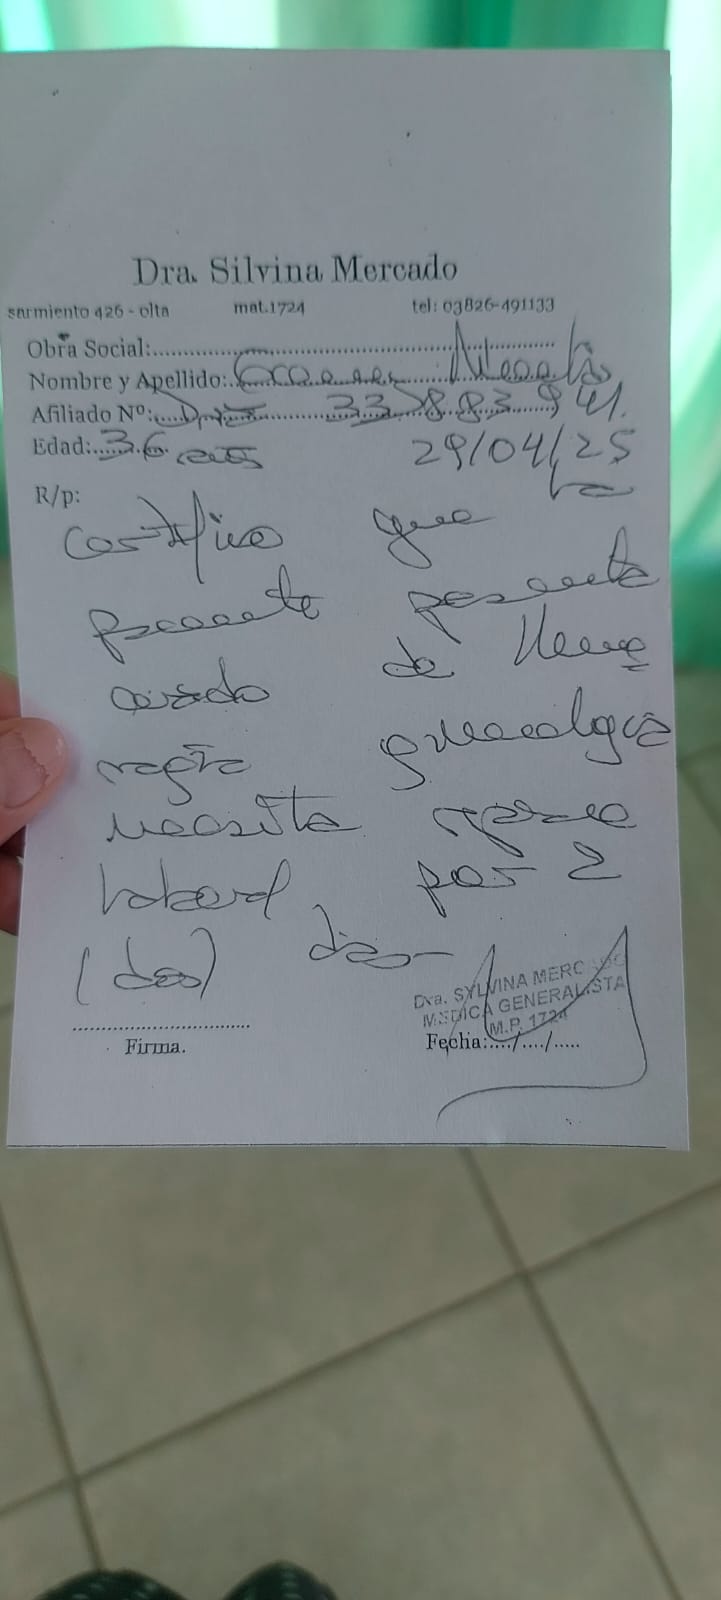 Dra. Silvina Mercado
sarmiento 426 - olta mat.1724 tel: 03826-491133
Obra Social:
Nombre y Apellido:
Afiliado Nº: 33
Edad: 36 años 29/04/25
R/p: la
certifico que
paciente presenta
cuadro de
ginecológica
necesita reposo
laboral por 2
(dos) días-
Dra. SYLVINA MERCADO
MEDICA GENERALISTA
M.P. 1724
Firma. Fecha:..../..../.....